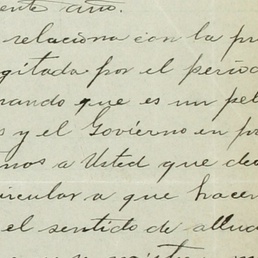 ente año.
relaciona con la pr
gitada por el perío
nando que es un pel
s y el Govierno en po
nos a Usted que de
ircular a que hacen
el sentido de allud